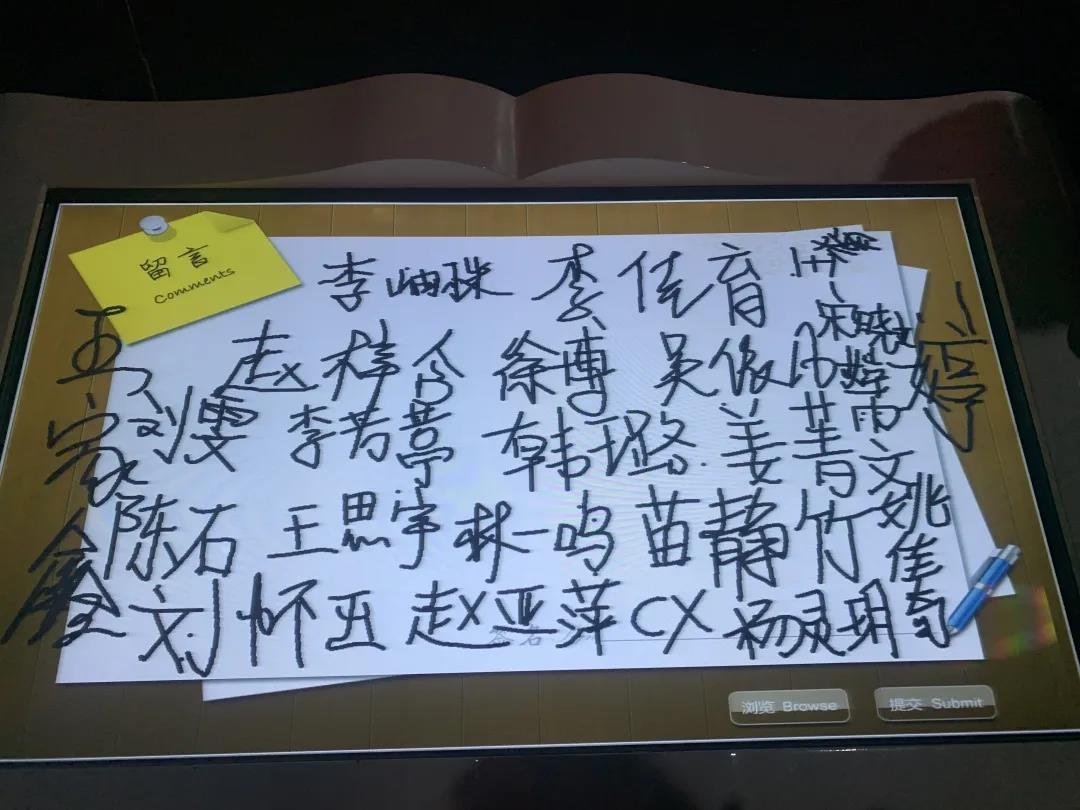 留言
Comments
李岫珠 李佳育
赵梓含 徐博 吴俊
宋晓婷
刘雯 李芳葶 韩璐 姜菁文
陈石 王思宇 林一鸣 苗静竹 姚佳
刘怀亚 赵亚萍 CX 杨灵玥
浏览 Browse 提交 Submit